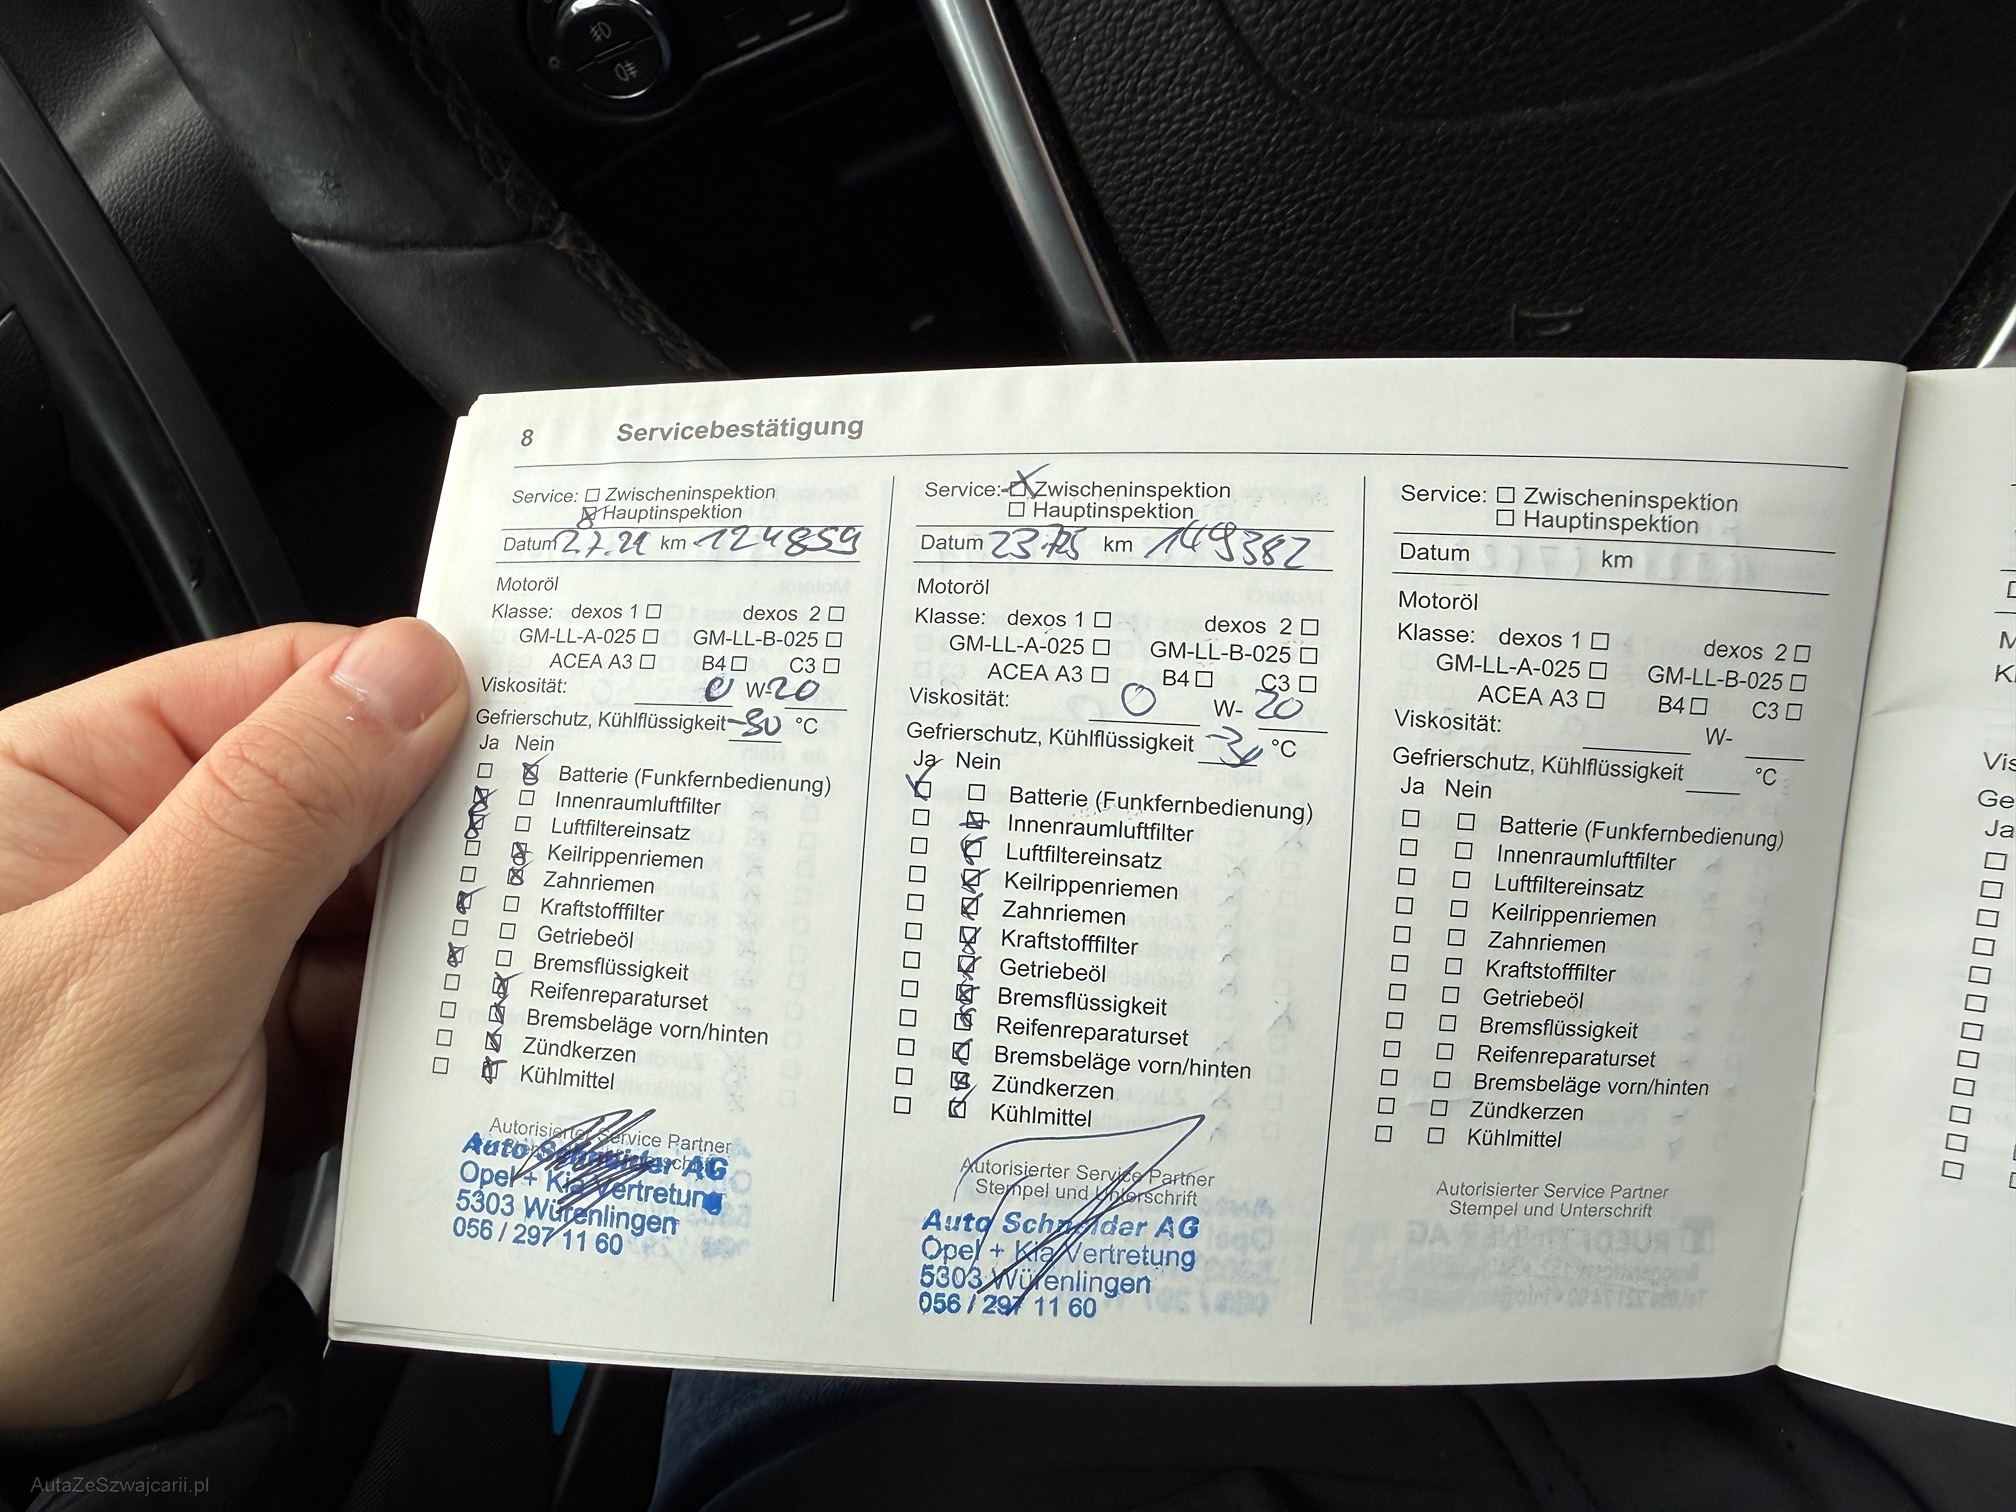 8 Servicebestätigung
Service: Zwischeninspektion
Hauptinspektion
Datum km 124859
Motoröl
Klasse: dexos 1 dexos 2
GM-LL-A-025 GM-LL-B-025
ACEA A3 B4 C3
Viskosität: 0 W-20
Gefrierschutz, Kühlflüssigkeit -30 °C
Ja Nein
Batterie (Funkfernbedienung)
Innenraumluftfilter
Luftfiltereinsatz
Keilrippenriemen
Zahnriemen
Kraftstofffilter
Getriebeöl
Bremsflüssigkeit
Reifenreparaturset
Bremsbeläge vorn/hinten
Zündkerzen
Kühlmittel
Autorisierter Service Partner
Auto Schneider AG
Opel + Kia Vertretung
5303 Würenlingen
056 / 297 11 60
Service: Zwischeninspektion
Hauptinspektion
Datum 23.7.25 km 149382
Motoröl
Klasse: dexos 1 dexos 2
GM-LL-A-025 GM-LL-B-025
ACEA A3 B4 C3
Viskosität: 0 W-20
Gefrierschutz, Kühlflüssigkeit -30 °C
Ja Nein
Batterie (Funkfernbedienung)
Innenraumluftfilter
Luftfiltereinsatz
Keilrippenriemen
Zahnriemen
Kraftstofffilter
Getriebeöl
Bremsflüssigkeit
Reifenreparaturset
Bremsbeläge vorn/hinten
Zündkerzen
Kühlmittel
Autorisierter Service Partner
Stempel und Unterschrift
Auto Schneider AG
Opel + Kia Vertretung
5303 Würenlingen
056 / 297 11 60
Service: Zwischeninspektion
Hauptinspektion
Datum km
Motoröl
Klasse: dexos 1 dexos 2
GM-LL-A-025 GM-LL-B-025
ACEA A3 B4 C3
Viskosität: W-
Gefrierschutz, Kühlflüssigkeit °C
Ja Nein
Batterie (Funkfernbedienung)
Innenraumluftfilter
Luftfiltereinsatz
Keilrippenriemen
Zahnriemen
Kraftstofffilter
Getriebeöl
Bremsflüssigkeit
Reifenreparaturset
Bremsbeläge vorn/hinten
Zündkerzen
Kühlmittel
Autorisierter Service Partner
Stempel und Unterschrift
Ja
AutaZeSzwajcarii.pl